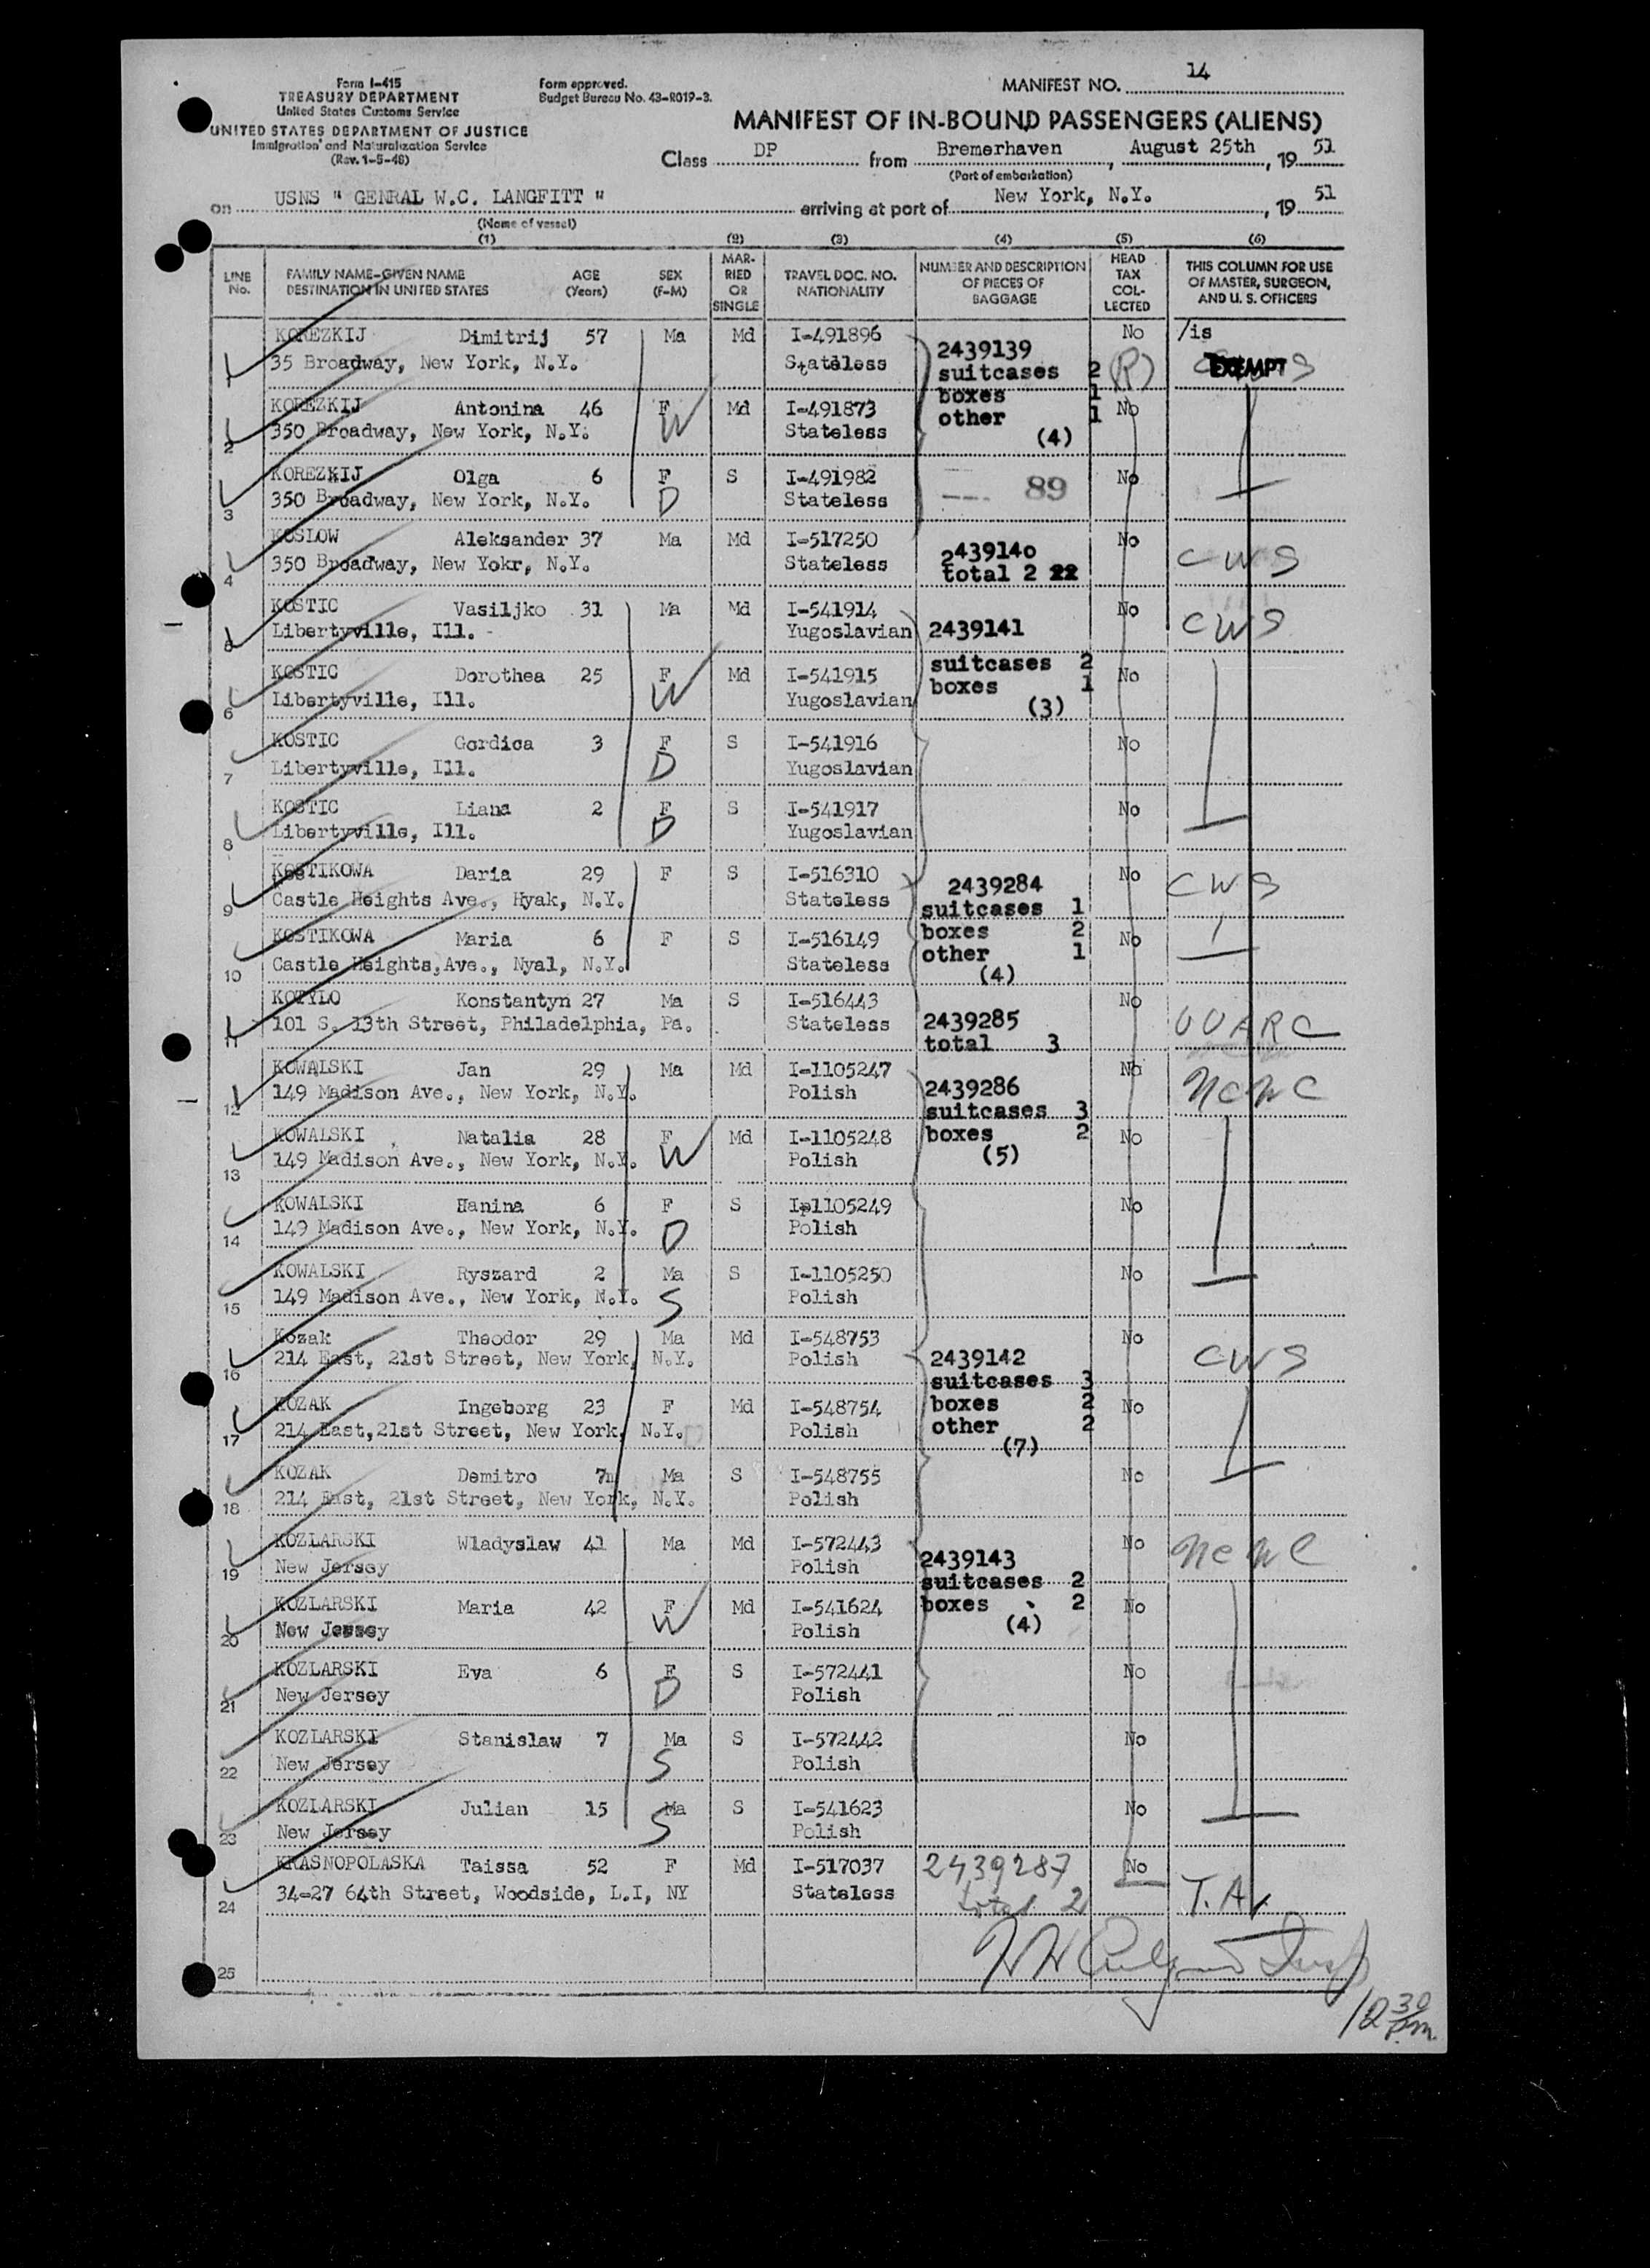 Form I-415
TREASURY DEPARTMENT
United States Customs Service
UNITED STATES DEPARTMENT OF JUSTICE
Immigration and Naturalization Service
(Rev. 1-5-48)
Form approved.
Budget Bureau No. 43-R019-3.
MANIFEST NO. 14
MANIFEST OF IN-BOUND PASSENGERS (ALIENS)
Class DP from Bremerhaven, August 25th, 19 51
(Port of embarkation)
on USNS " GENRAL W.C. LANGFITT " arriving at port of New York, N.Y., 19 51
(Name of vessel)
(1) (2) (3) (4) (5) (6)
LINE No. FAMILY NAME-GIVEN NAME DESTINATION IN UNITED STATES AGE (Years) SEX (F-M) MARRIED OR SINGLE TRAVEL DOC. NO. NATIONALITY NUMBER AND DESCRIPTION OF PIECES OF BAGGAGE HEAD TAX COLLECTED THIS COLUMN FOR USE OF MASTER, SURGEON, AND U. S. OFFICERS
KOREZKIJ Dimitrij 57 Ma Md I-491896 2439139 No /is
1 35 Broadway, New York, N.Y. Stateless suitcases 2 (R) EXEMPT
KOREZKIJ Antonina 46 F Md I-491873 boxes 1 No
2 350 Broadway, New York, N.Y. W Stateless other 1
(4)
KOREZKIJ Olga 6 F S I-491982 89 No
3 350 Broadway, New York, N.Y. D Stateless
KOSLOW Aleksander 37 Ma Md I-517250 2439140 No
4 350 Broadway, New Yokr, N.Y. Stateless total 2 22 CWS
KOSTIC Vasiljko 31 Ma Md I-541914 No
5 Libertyville, Ill. - Yugoslavian 2439141 CWS
KOSTIC Dorothea 25 F Md I-541915 suitcases 2 No
6 Libertyville, Ill. W Yugoslavian boxes 1
(3)
KOSTIC Gordica 3 F S I-541916 No
7 Libertyville, Ill. D Yugoslavian
KOSTIC Liana 2 F S I-541917 No
8 Libertyville, Ill. D Yugoslavian
KOSTIKOWA Daria 29 F S I-516310 2439284 No CWS
9 Castle Heights Ave., Hyak, N.Y. Stateless suitcases 1
KOSTIKOWA Maria 6 F S I-516149 boxes 2 No
10 Castle Heights,Ave., Nyal, N.Y. Stateless other 1
(4)
KOTYLO Konstantyn 27 Ma S I-516443 2439285 No
11 101 S. 13th Street, Philadelphia, Pa. Stateless total 3 UUARC
KOWALSKI Jan 29 Ma Md I-1105247 2439286 No
12 149 Madison Ave., New York, N.Y. Polish suitcases 3 NCWC
KOWALSKI Natalia 28 F Md I-1105248 boxes 2 No
13 149 Madison Ave., New York, N.Y. W Polish (5)
KOWALSKI Hanina 6 F S Ip1105249 No
14 149 Madison Ave., New York, N.Y. D Polish
KOWALSKI Ryszard 2 Ma S I-1105250 No
15 149 Madison Ave., New York, N.Y. S Polish
Kozak Theodor 29 Ma Md I-548753 No
16 214 East, 21st Street, New York, N.Y. Polish 2439142 CWS
suitcases 3
KOZAK Ingeborg 23 F Md I-548754 boxes 2 No
17 214 East,21st Street, New York, N.Y. Polish other 2
(7)
KOZAK Demitro 7m Ma S I-548755 No
18 214 East, 21st Street, New York, N.Y. Polish
KOZLARSKI Wladyslaw 41 Ma Md I-572443 No NCWC
19 New Jersey Polish 2439143
suitcases 2
KOZLARSKI Maria 42 F Md I-541624 boxes 2 No
20 New Jersey W Polish (4)
KOZLARSKI Eva 6 F S I-572441 No
21 New Jersey D Polish
KOZLARSKI Stanislaw 7 Ma S I-572442 No
22 New Jersey S Polish
KOZLARSKI Julian 15 Ma S I-541623 No
23 New Jersey S Polish
KRASNOPOLASKA Taissa 52 F Md I-517037 2439287 No
24 34-27 64th Street, Woodside, L.I, NY Stateless total 2 T.A.
25
12 30 p.m.